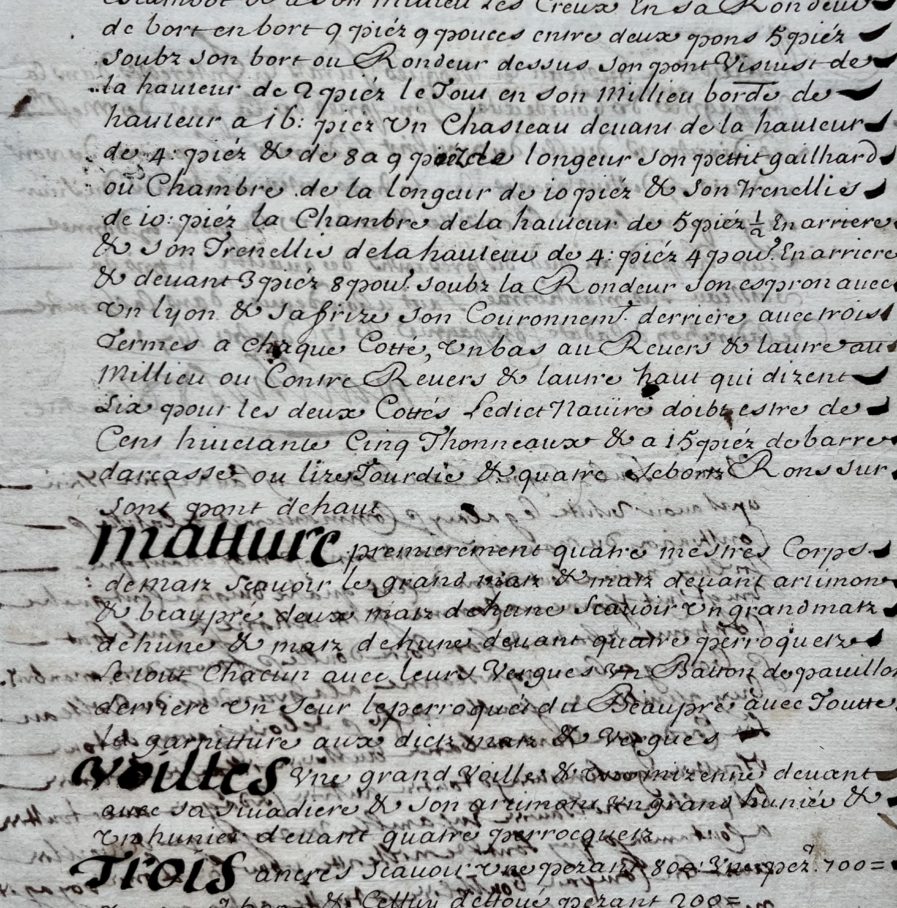 de bort en bort 9 piéz 9 pouces entre deux pons 5 piéz
soubz son bort ou Rondeur dessus son pont Visiust de
la hauteur de 2 piéz le Tout en son millieu borde de
hauteur a 16: piez Vn Chasteau deuant de la hauteur
de 4: piéz & de 8 a 9 de longeur son pettit gailhard
ou Chambre de la longeur de 10 piéz & son Trenellis
de 10: piéz la Chambre de la hauteur de 5 piéz ½ En arriere
& son Trenellis de la hauteur de 4: piéz 4 pou: En arriere
& deuant 3 piéz 8 pou: soubz la Rondeur son espron auec
Vn lyon & sa frize son Couronnemt. derriere auec trois
Termes a Chaque Cotté, Vn bas au Reuers & lautre au
millieu ou Contre Reuers & lautre haut qui dizent
six pour les deux Cottés Ledict Nauire doibt estre de
Cent huictante Cinq Thonneaux & a 15 piéz de barre
darcasse ou lize Tourdie & quatre Rons sur
sont pont de haut
Matture premierement quatre mestres Corps
de matz scauoir le grand matz & matz deuant artimon
& beaupré deux matz de hune scauoir Vn grand matz
de hune & matz de hune deuant quatre perroquetz
Le tout Chacun auec leurs Vergues Vn Baton de pauillon
derriere Vn seur le perroquet du Beaupré auec Toutte
La garnitture aux dictz matz & Vergues
Voilles Vne grand Voille & mizenne deuant
auec sa Siuadiere & son artimon Vn grand hunié &
Vn hunier deuant quatre perrocquetz
Trois ancres scauoir Vne pezant 800 Vne pezt. 700=
& Cettuy de touë pezant 200=